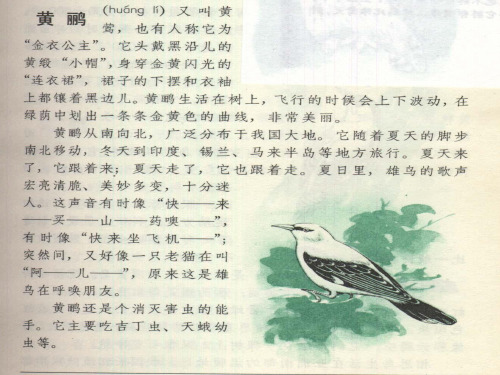 黄 鹂 (huáng lí) 又叫黄
莺，也有人称它为
“金衣公主”。它头戴黑沿儿的
黄缎“小帽”，身穿金黄闪光的
“连衣裙”，裙子的下摆和衣袖
上都镶着黑边儿。黄鹂生活在树上，飞行的时候会上下波动，在
绿荫中划出一条条金黄色的曲线，非常美丽。
黄鹂从南向北，广泛分布于我国大地。它随着夏天的脚步
南北移动，冬天到印度、锡兰、马来半岛等地方旅行。夏天来
了，它跟着来；夏天走了，它也跟着走。夏日里，雄鸟的歌声
宏亮清脆、美妙多变，十分迷
人。这声音有时像“快——来
——买——山——药噢——”，
有时像“快来坐飞机——”；
突然间，又好像一只老猫在叫
“阿——儿——”，原来这是雄
鸟在呼唤朋友。
黄鹂还是个消灭害虫的能
手。它主要吃吉丁虫、天蛾幼
虫等。